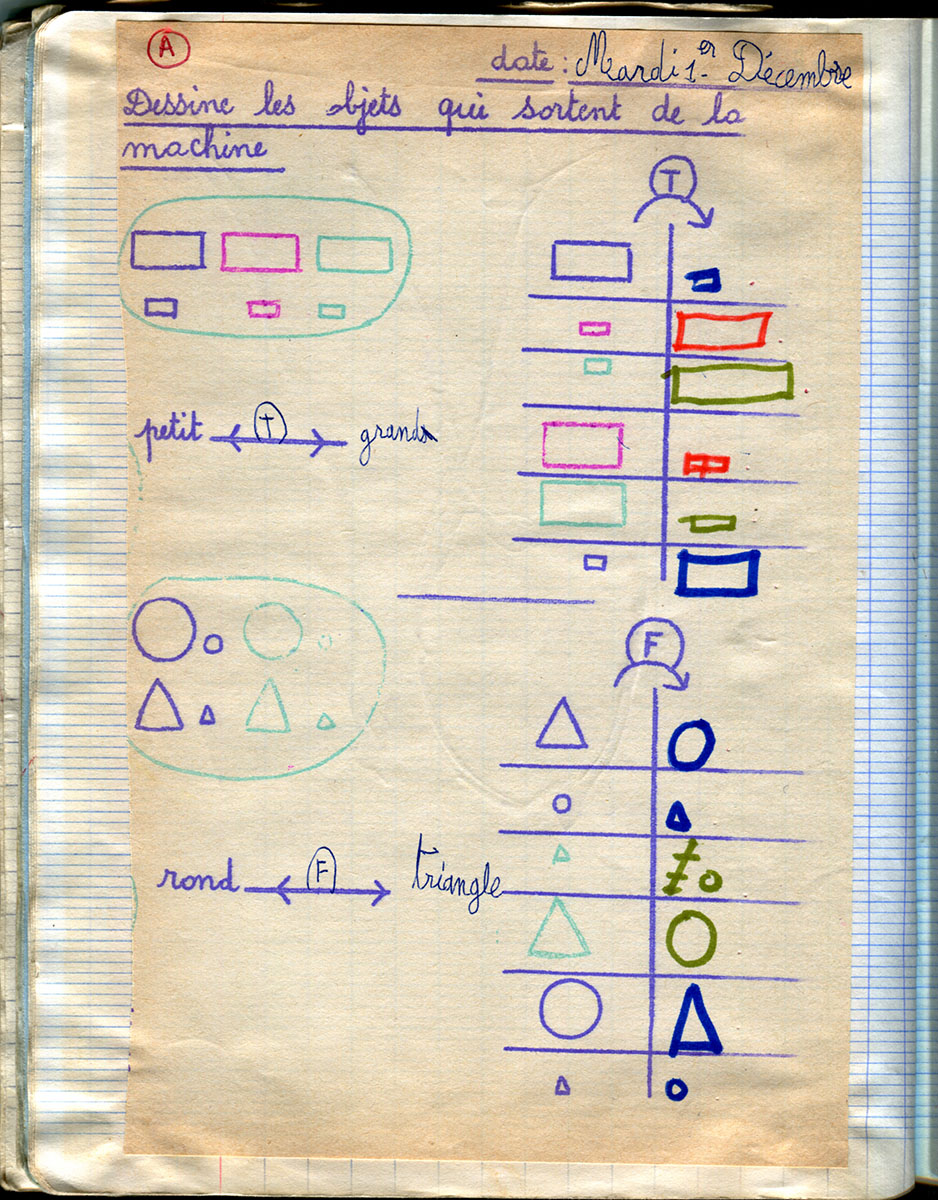 A
date : Mardi 1er Décembre
Dessine les objets qui sortent de la
machine
T
petit T grands
F
rond F triangle